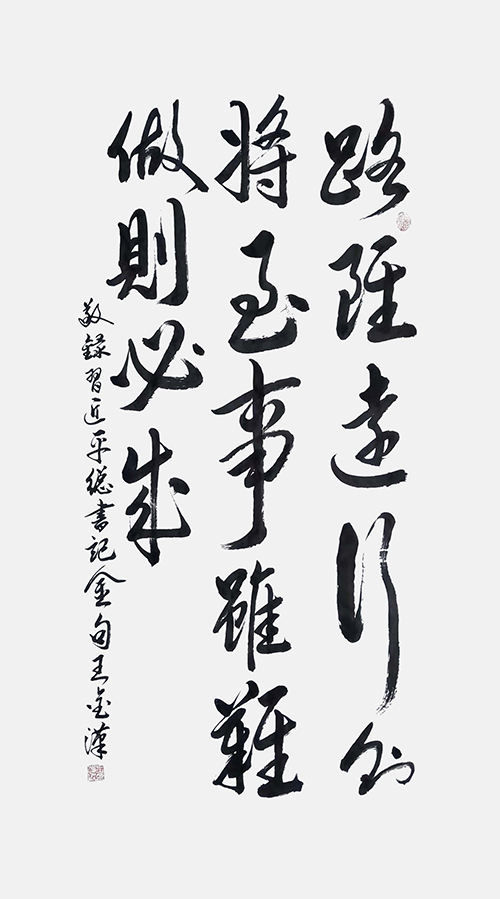 路雖遠行則
將至事雖難
做則必成
敬録習近平總書記金句王漢